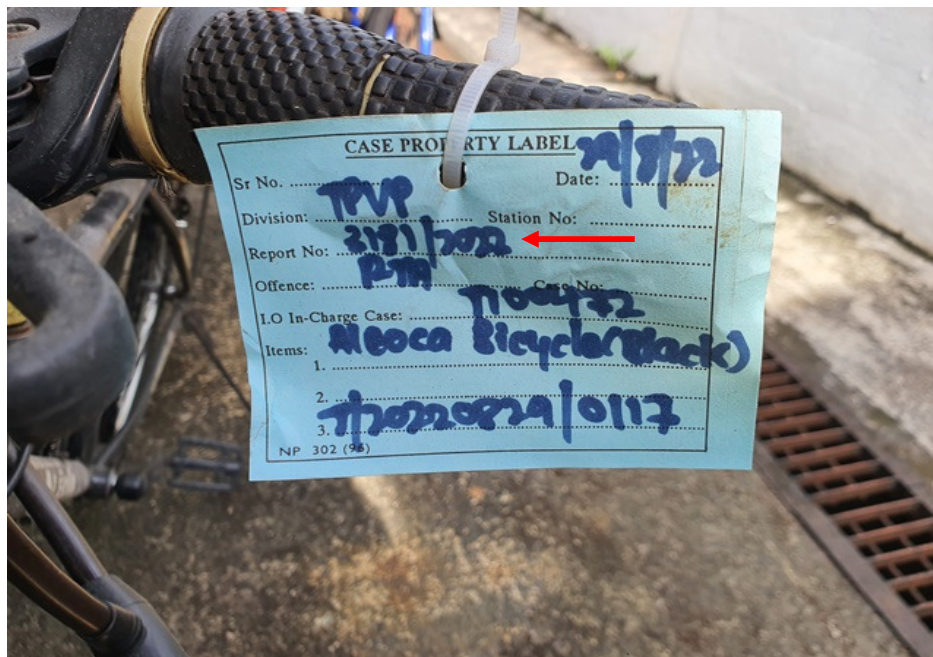 CASE PROPERTY LABEL
Sr No. Date: 29/8/22
Division: TPVP Station No:
Report No: 2181/2022
Offence: RTA Case No:
I.O In-Charge Case: TI00472
Items: Aleoca Bicycle (Black)
1.
2.
3. T/20220829/0117
NP 302 (96)